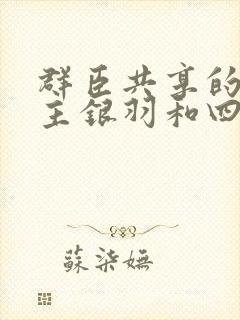 群臣共享的
主银羽和四
蘇柒嫵